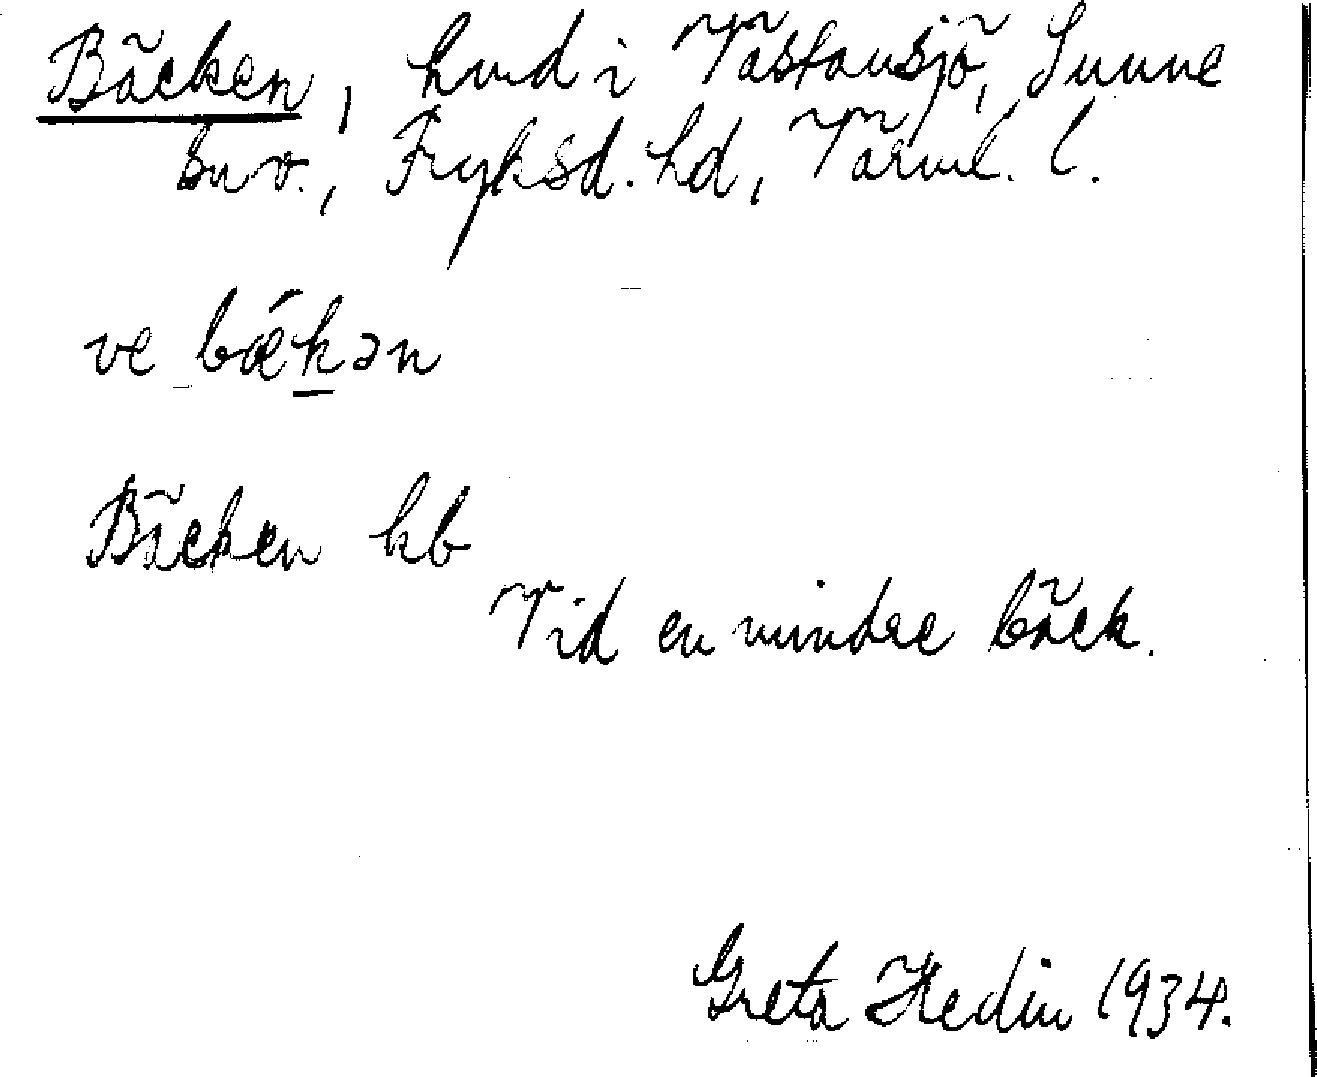 Bäcken, hmd i Västansjö, Sunne
sn v., Fryksd. hd, Värml. l.
ve bǽk̲ən
Bäcken kb
Vid en mindre bäck.
Greta Hedin 1934.